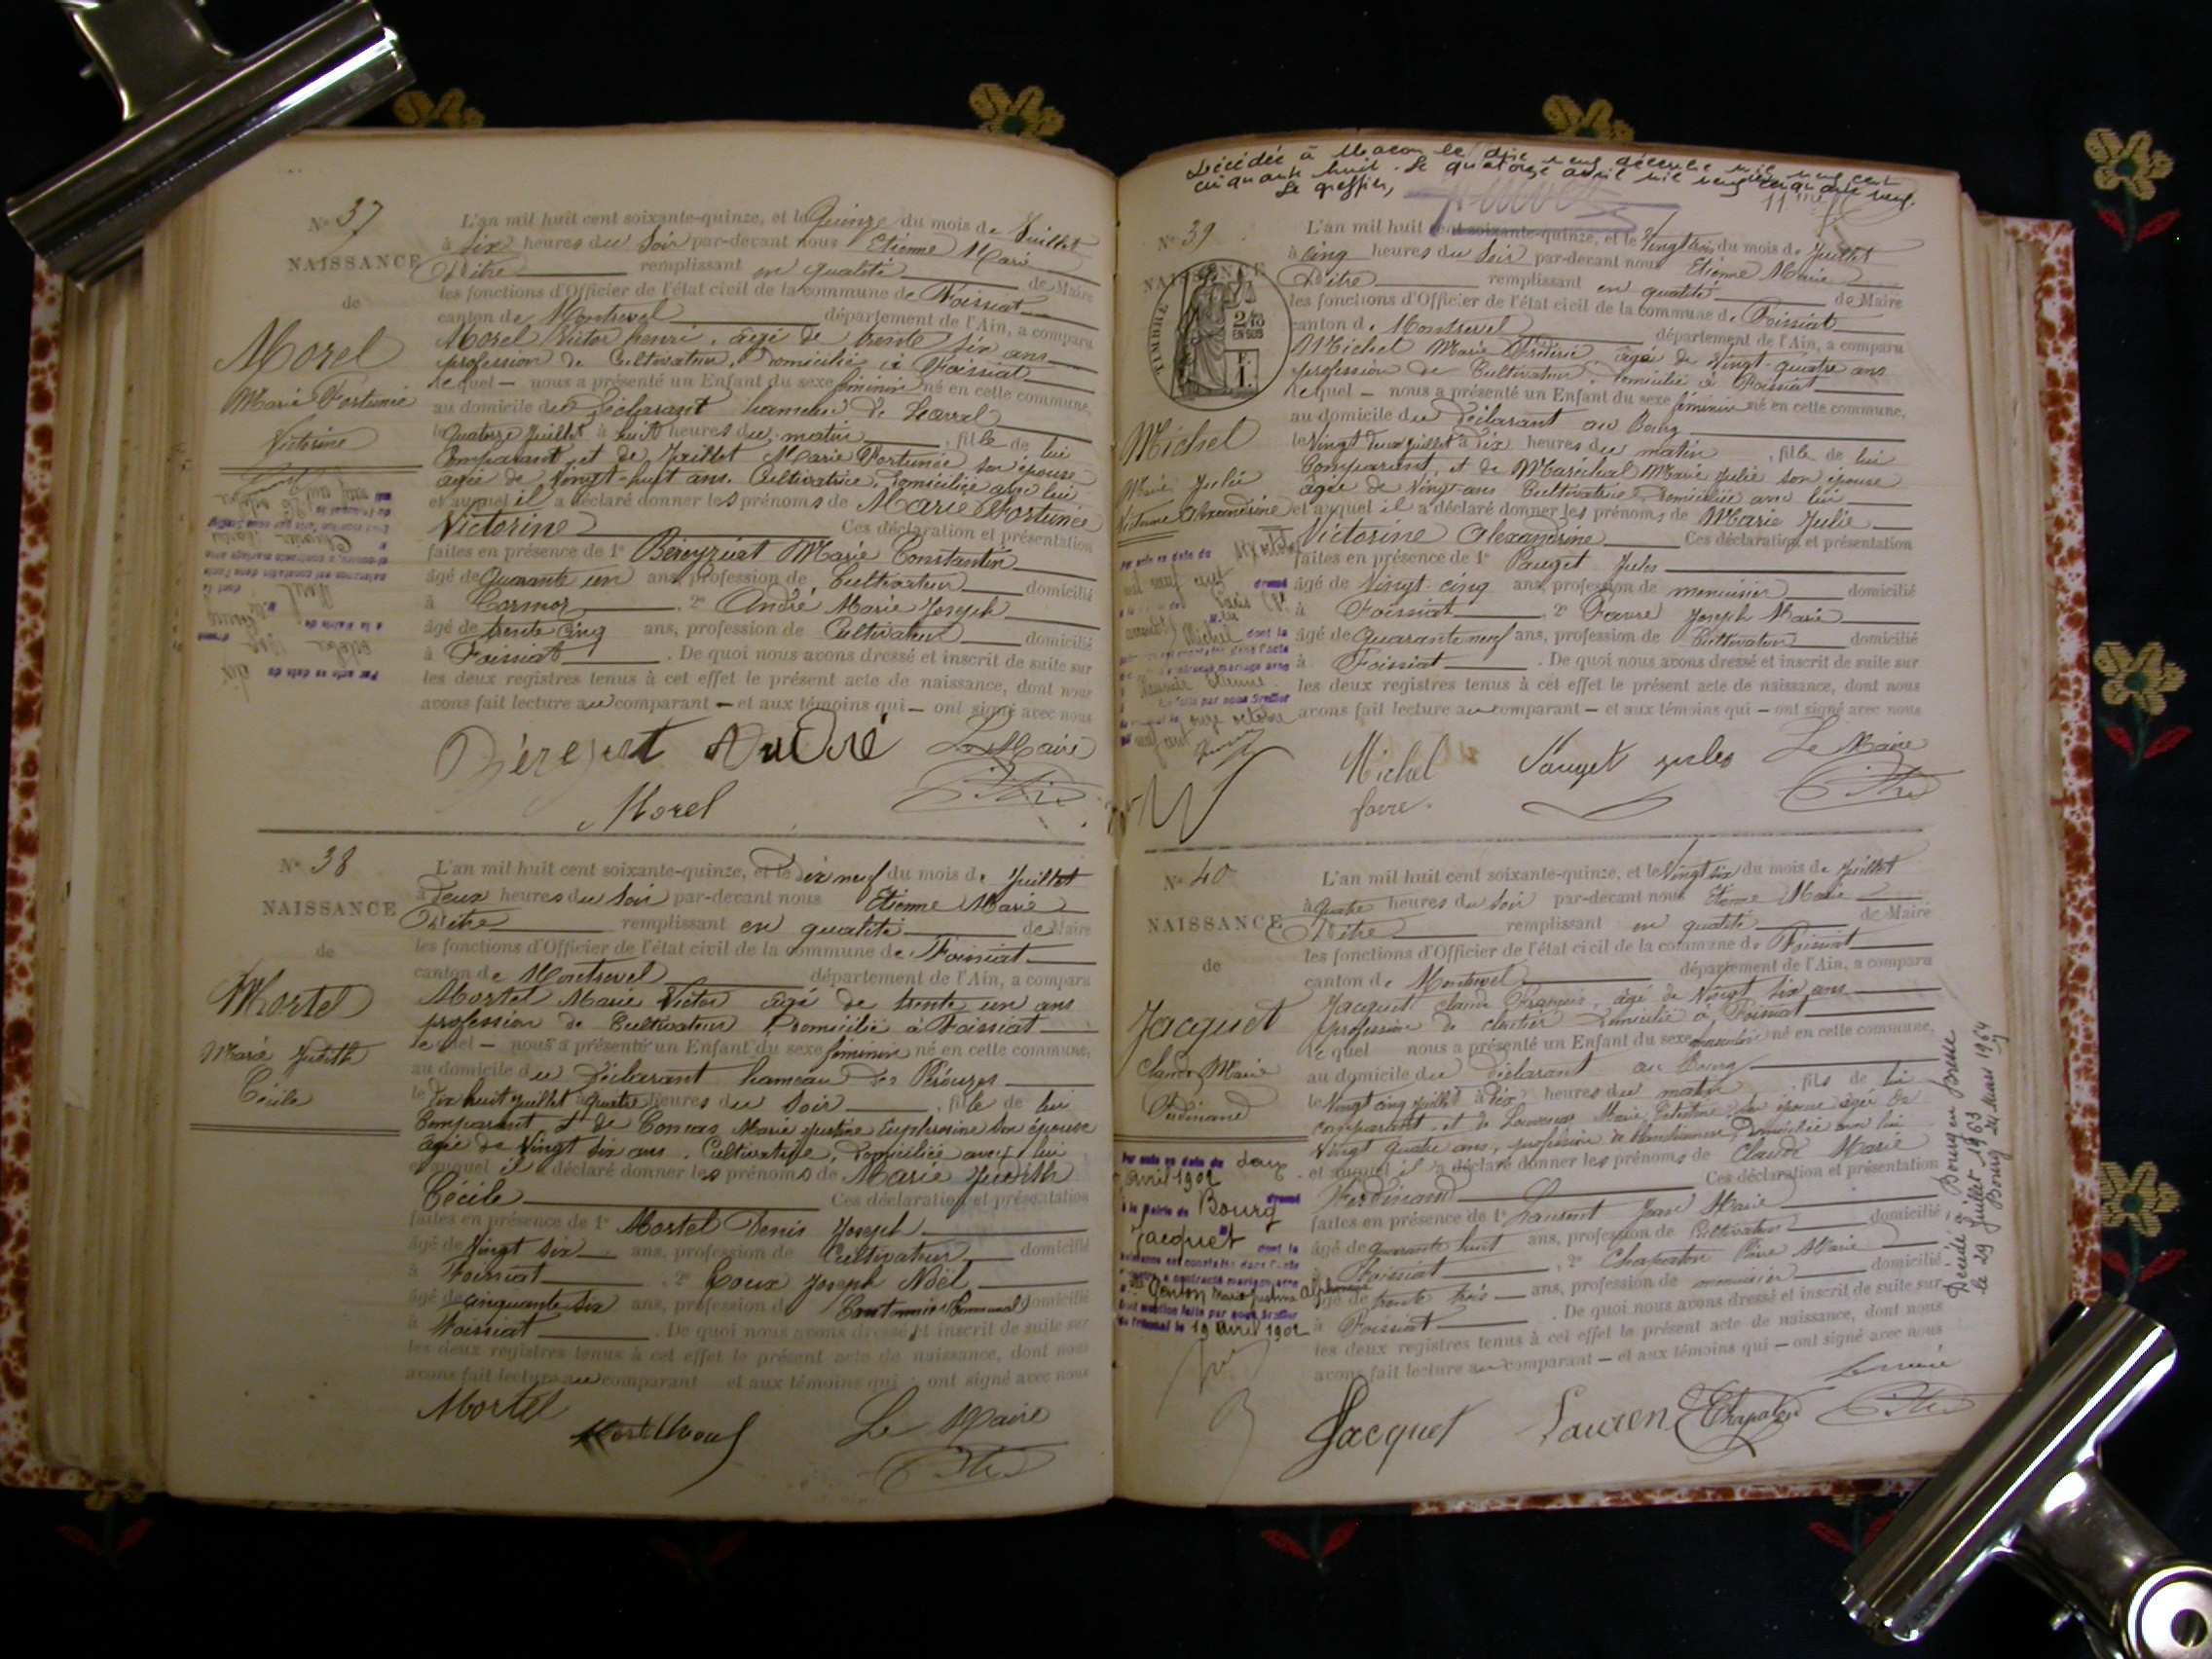 N° 37
NAISSANCE
de
Morel
Marie Fortunée
Victorine
L'an mil huit cent soixante-quinze, et le Quinze du mois de Juillet
à six heures du Soir par-devant nous Etienne Marie
Pitre remplissant en qualité de Maire
les fonctions d'Officier de l'état civil de la commune de Foissiat
canton de Montrevel département de l'Ain, a comparu
Morel Victor henri, âgé de trente six ans
profession de Cultivateur, Domicilié à Foissiat
lequel — nous a présenté un Enfant du sexe féminin né en cette commune,
au domicile du Déclarant hameau de
le Quatorze Juillet à huit heures du matin, fille de lui
Comparant, et de Juillet Marie Fortunée son épouse
âgée de Vingt-huit ans, Cultivatrice, Domiciliée avec lui
et auquel il a déclaré donner les prénoms de Marie Fortunée
Victorine Ces déclaration et présentation
faites en présence de 1° Béreyziat Marie Constantin
âgé de Quarante un ans, profession de Cultivateur domicilié
à Cormoz, 2° André Marie Joseph
âgé de trente cinq ans, profession de Cultivateur domicilié
à Foissiat. De quoi nous avons dressé et inscrit de suite sur
les deux registres tenus à cet effet le présent acte de naissance, dont nous
avons fait lecture au comparant — et aux témoins qui — ont signé avec nous
André Le Maire
Morel
N° 38
NAISSANCE
de
Mortel
Marie Judith
Cécile
L'an mil huit cent soixante-quinze, et le Dix neuf du mois de Juillet
à Deux heures du Soir par-devant nous Etienne Marie
Pitre remplissant en qualité de Maire
les fonctions d'Officier de l'état civil de la commune de Foissiat
canton de Montrevel département de l'Ain, a comparu
Mortel Marie Victor âgé de trente un ans
profession de Cultivateur Domicilié à Foissiat
lequel — nous a présenté un Enfant du sexe féminin né en cette commune,
au domicile du Déclarant hameau des
le Dix huit Juillet à quatre heures du Soir, fille de lui
Comparant et de Convas Marie Justine Euphrosine son épouse
âgée de Vingt six ans, Cultivatrice, Domiciliée avec lui
et auquel il a déclaré donner les prénoms de Marie Judith
Cécile Ces déclaration et présentation
faites en présence de 1° Mortel Denis Joseph
âgé de Vingt six ans, profession de Cultivateur domicilié
à Foissiat, 2° Joseph Noël
âgé de cinquante six ans, profession de Cantonnier Communal domicilié
à Foissiat. De quoi nous avons dressé et inscrit de suite sur
les deux registres tenus à cet effet le présent acte de naissance, dont nous
avons fait lecture au comparant et aux témoins qui ont signé avec nous
Mortel
Le Maire
Décédée à Macon le dix neuf décembre mil neuf cent
cinquante huit. Le quatorze avril mil neuf cent cinquante neuf.
Le greffier,
N° 39
NAISSANCE
TIMBRE
2/10
EN SUS
Michel
Marie Julie
Victorine Alexandrine
L'an mil huit cent soixante-quinze, et le Vingt trois du mois de Juillet
à Cinq heures du Soir par-devant nous Etienne Marie
Pitre remplissant en qualité de Maire
les fonctions d'Officier de l'état civil de la commune de Foissiat
canton de Montrevel département de l'Ain, a comparu
Michel Marie Frédéric, âgé de Vingt-quatre ans
profession de Cultivateur, Domicilié à Foissiat
lequel — nous a présenté un Enfant du sexe féminin né en cette commune,
au domicile du Déclarant au Bourg
le Vingt deux Juillet à Dix heures du matin, fille de lui
Comparant, et de Maréchal Marie Julie son épouse
âgée de Vingt ans Cultivatrice Domiciliée avec lui
et auquel il a déclaré donner les prénoms de Marie Julie
Victorine Alexandrine Ces déclaration et présentation
faites en présence de 1° Pauget Jules
âgé de Vingt-cinq ans, profession de menuisier domicilié
à Foissiat, 2° Favre Joseph Marie
âgé de Quarante neuf ans, profession de Cultivateur domicilié
à Foissiat. De quoi nous avons dressé et inscrit de suite sur
les deux registres tenus à cet effet le présent acte de naissance, dont nous
avons fait lecture au comparant — et aux témoins qui — ont signé avec nous
Michel Pauget jules Le Maire
favre
N° 40
NAISSANCE
de
Jacquet
Claude Marie
Ferdinand
L'an mil huit cent soixante-quinze, et le Vingt six du mois de Juillet
à Quatre heures du Soir par-devant nous Etienne Marie
Pitre remplissant en qualité de Maire
les fonctions d'Officier de l'état civil de la commune de Foissiat
canton de Montrevel département de l'Ain, a comparu
Jacquet Claude François, âgé de Vingt six ans
profession de Domicilié à Foissiat
lequel nous a présenté un Enfant du sexe masculin né en cette commune,
au domicile du déclarant au Bourg
le Vingt cinq juillet à Dix heures du matin, fils de lui
comparant et de Marie son épouse âgée de
Vingt quatre ans, profession de Domiciliée avec lui
et auquel il a déclaré donner les prénoms de Claude Marie
Ferdinand Ces déclaration et présentation
faites en présence de 1° Laurent Jean Marie
âgé de quarante huit ans, profession de Cultivateur domicilié
à Foissiat, 2° Chapaton Marie
âgé de trente trois ans, profession de menuisier domicilié
à Foissiat. De quoi nous avons dressé et inscrit de suite sur
les deux registres tenus à cet effet le présent acte de naissance, dont nous
avons fait lecture au comparant — et aux témoins qui — ont signé avec nous
Jacquet Lauren Chapaton
Par acte en date du deux
avril 1902 dressé
à la Mairie de Bourg
Jacquet dont la
naissance est constatée dans l'acte
a contracté mariage avec
Gonton Marie Justine Alphonsine
Dont mention faite par nous Greffier
du tribunal le 19 avril 1902
Décédé à Bourg en Bresse
le 29 Juillet 1963
Bourg 24 Mars 1964